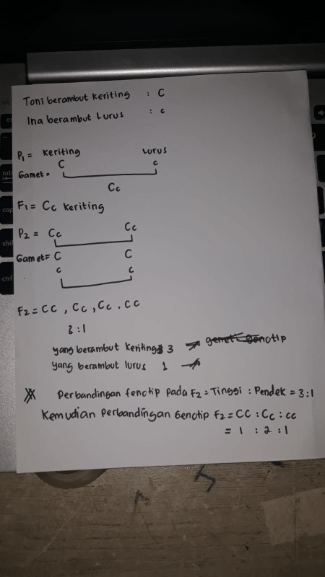 Toni berambut keriting : C
Ina berambut Lurus : c
P1 = keriting Lurus
C c
Gamet =
Cc
F1 = Cc keriting
P2 = Cc Cc
Gamet = C C
c c
F2 = CC, Cc, Cc, CC
3:1
yang berambut keriting 3
yang berambut lurus 1
Perbandingan fenotip pada F2 = Tinggi : Pendek = 3:1
Kemudian perbandingan Genotip F2 = CC : Cc : cc
= 1 : 2 : 1